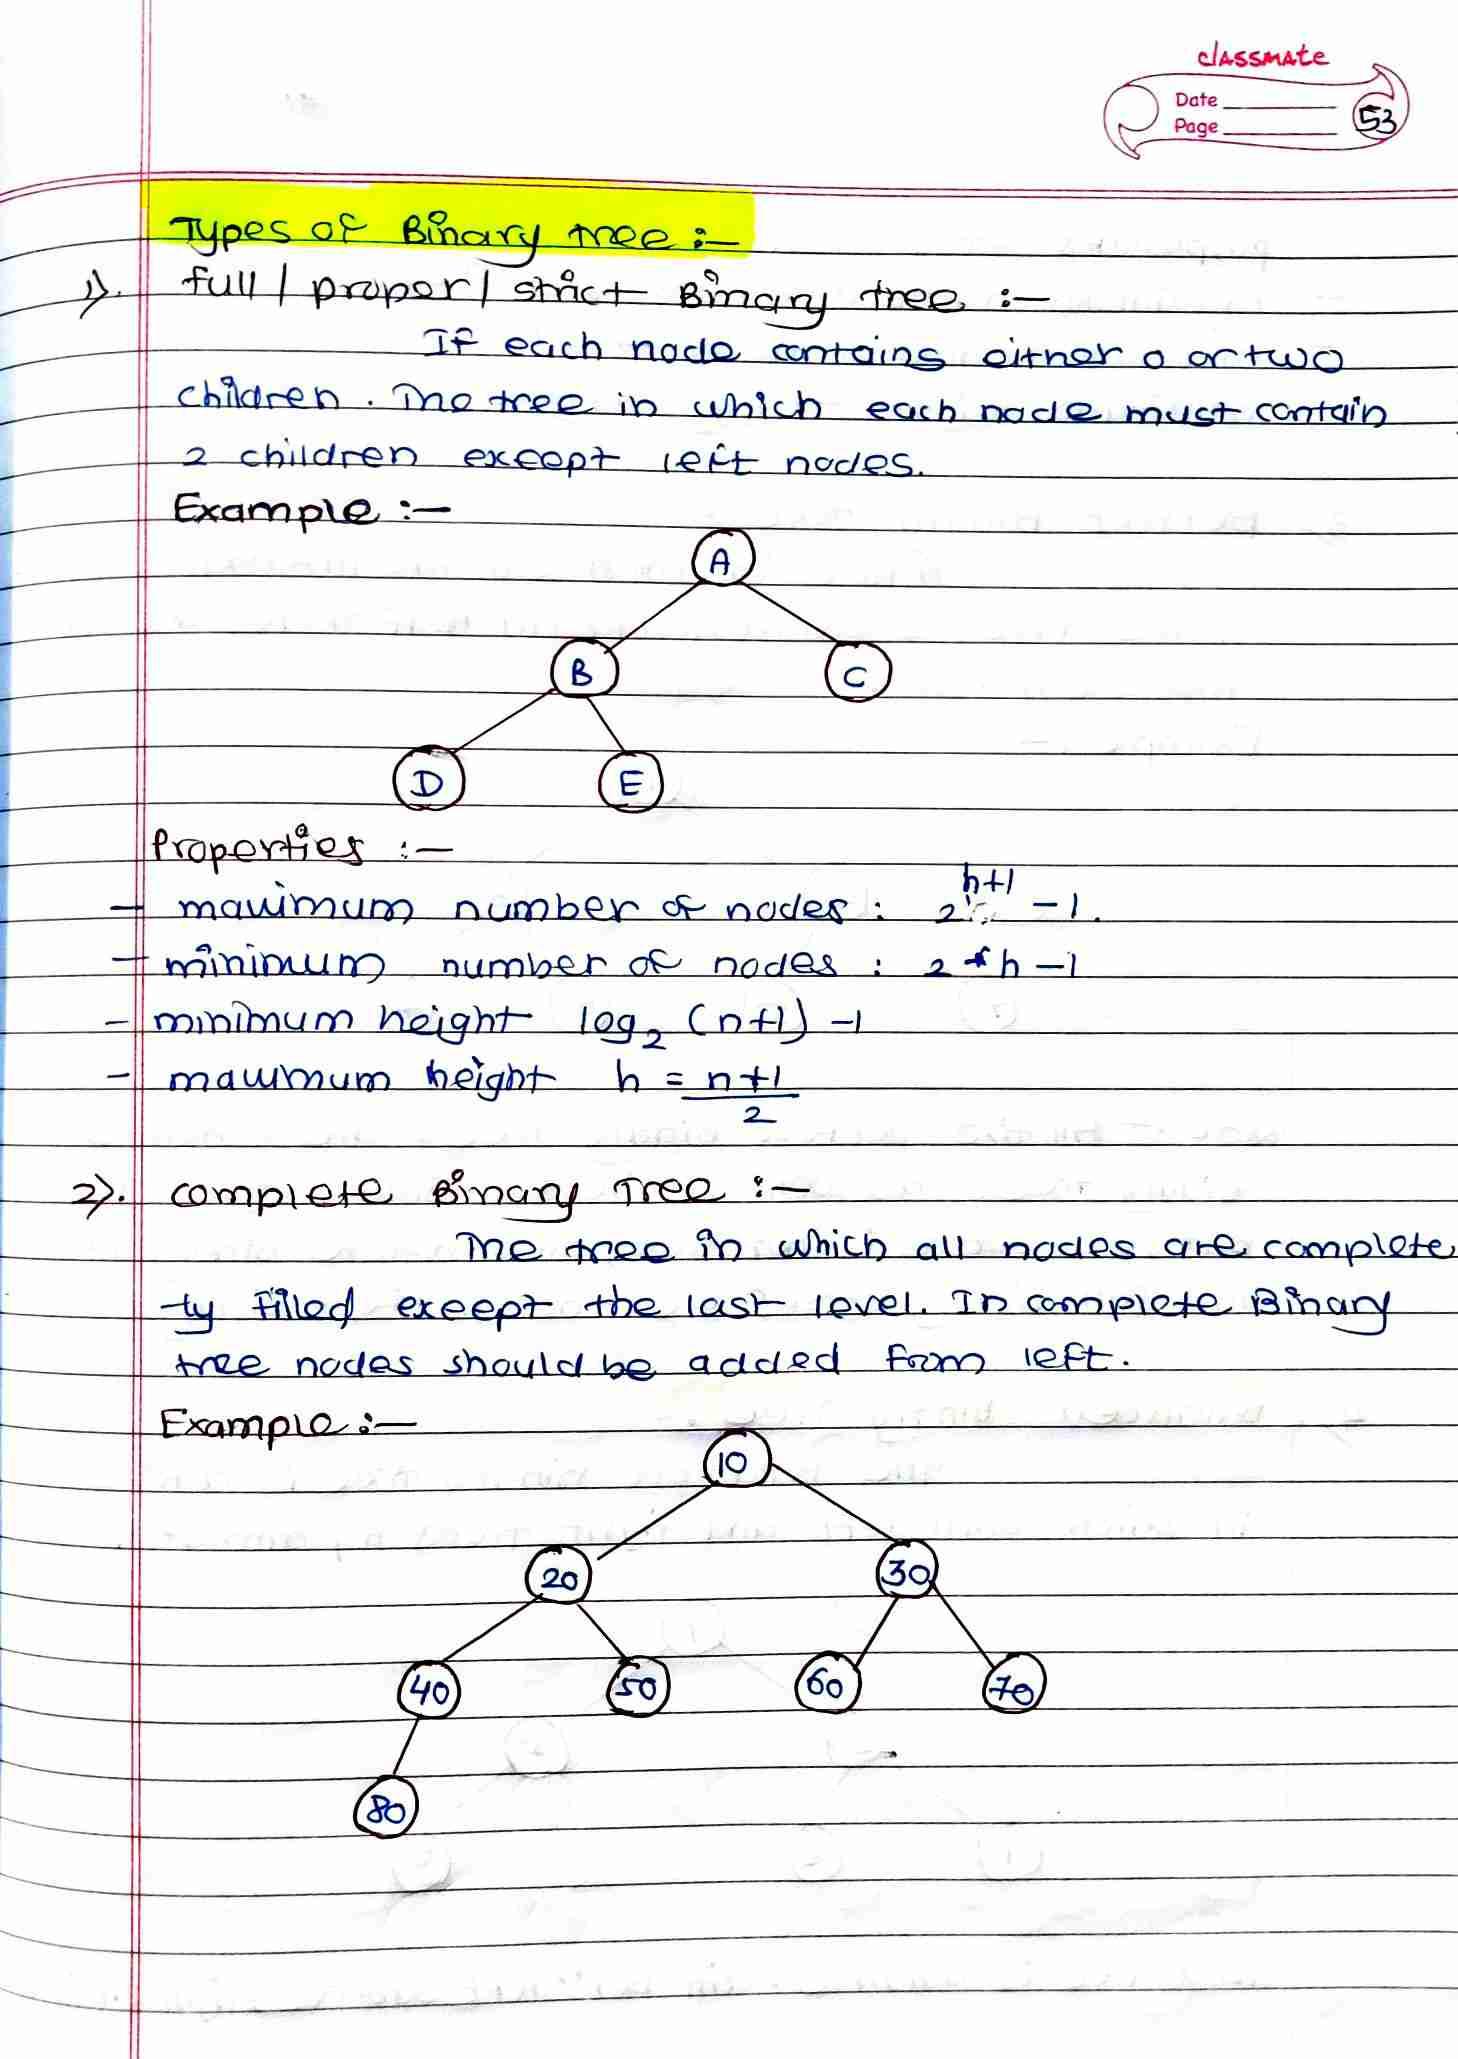 classmate
Date
Page
53
Types of Binary Tree :-
1). full / proper / strict Binary tree :-
If each node contains either 0 or two
children. The tree in which each node must contain
2 children except left nodes.
Example :-
A
B C
D E
Properties :-
- maximum number of nodes : 2^h+1 - 1.
- minimum number of nodes : 2 * h - 1
- minimum height log2 (n+1) - 1
- maximum height h = n+1
2
2). complete Binary Tree :-
The tree in which all nodes are complete
-ly filled except the last level. In complete Binary
tree nodes should be added from left.
Example :-
10
20 30
40 50 60 70
80